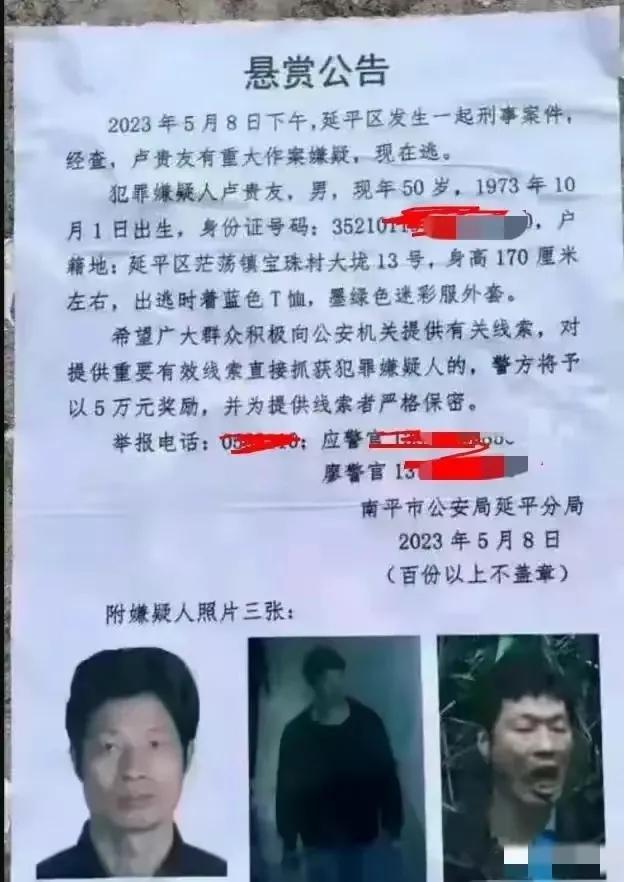 悬赏公告
2023年5月8日下午,延平区发生一起刑事案件,
经查,卢贵友有重大作案嫌疑,现在逃。
犯罪嫌疑人卢贵友,男,现年50岁,1973年10
月1日出生,身份证号码:3521011 ,户
籍地:延平区茫荡镇宝珠村大垅13号,身高170厘米
左右,出逃时着蓝色T恤,墨绿色迷彩服外套。
希望广大群众积极向公安机关提供有关线索,对
提供重要有效线索直接抓获犯罪嫌疑人的,警方将予
以5万元奖励,并为提供线索者严格保密。
举报电话: ;应警官
廖警官13
南平市公安局延平分局
2023年5月8日
(百份以上不盖章)
附嫌疑人照片三张: